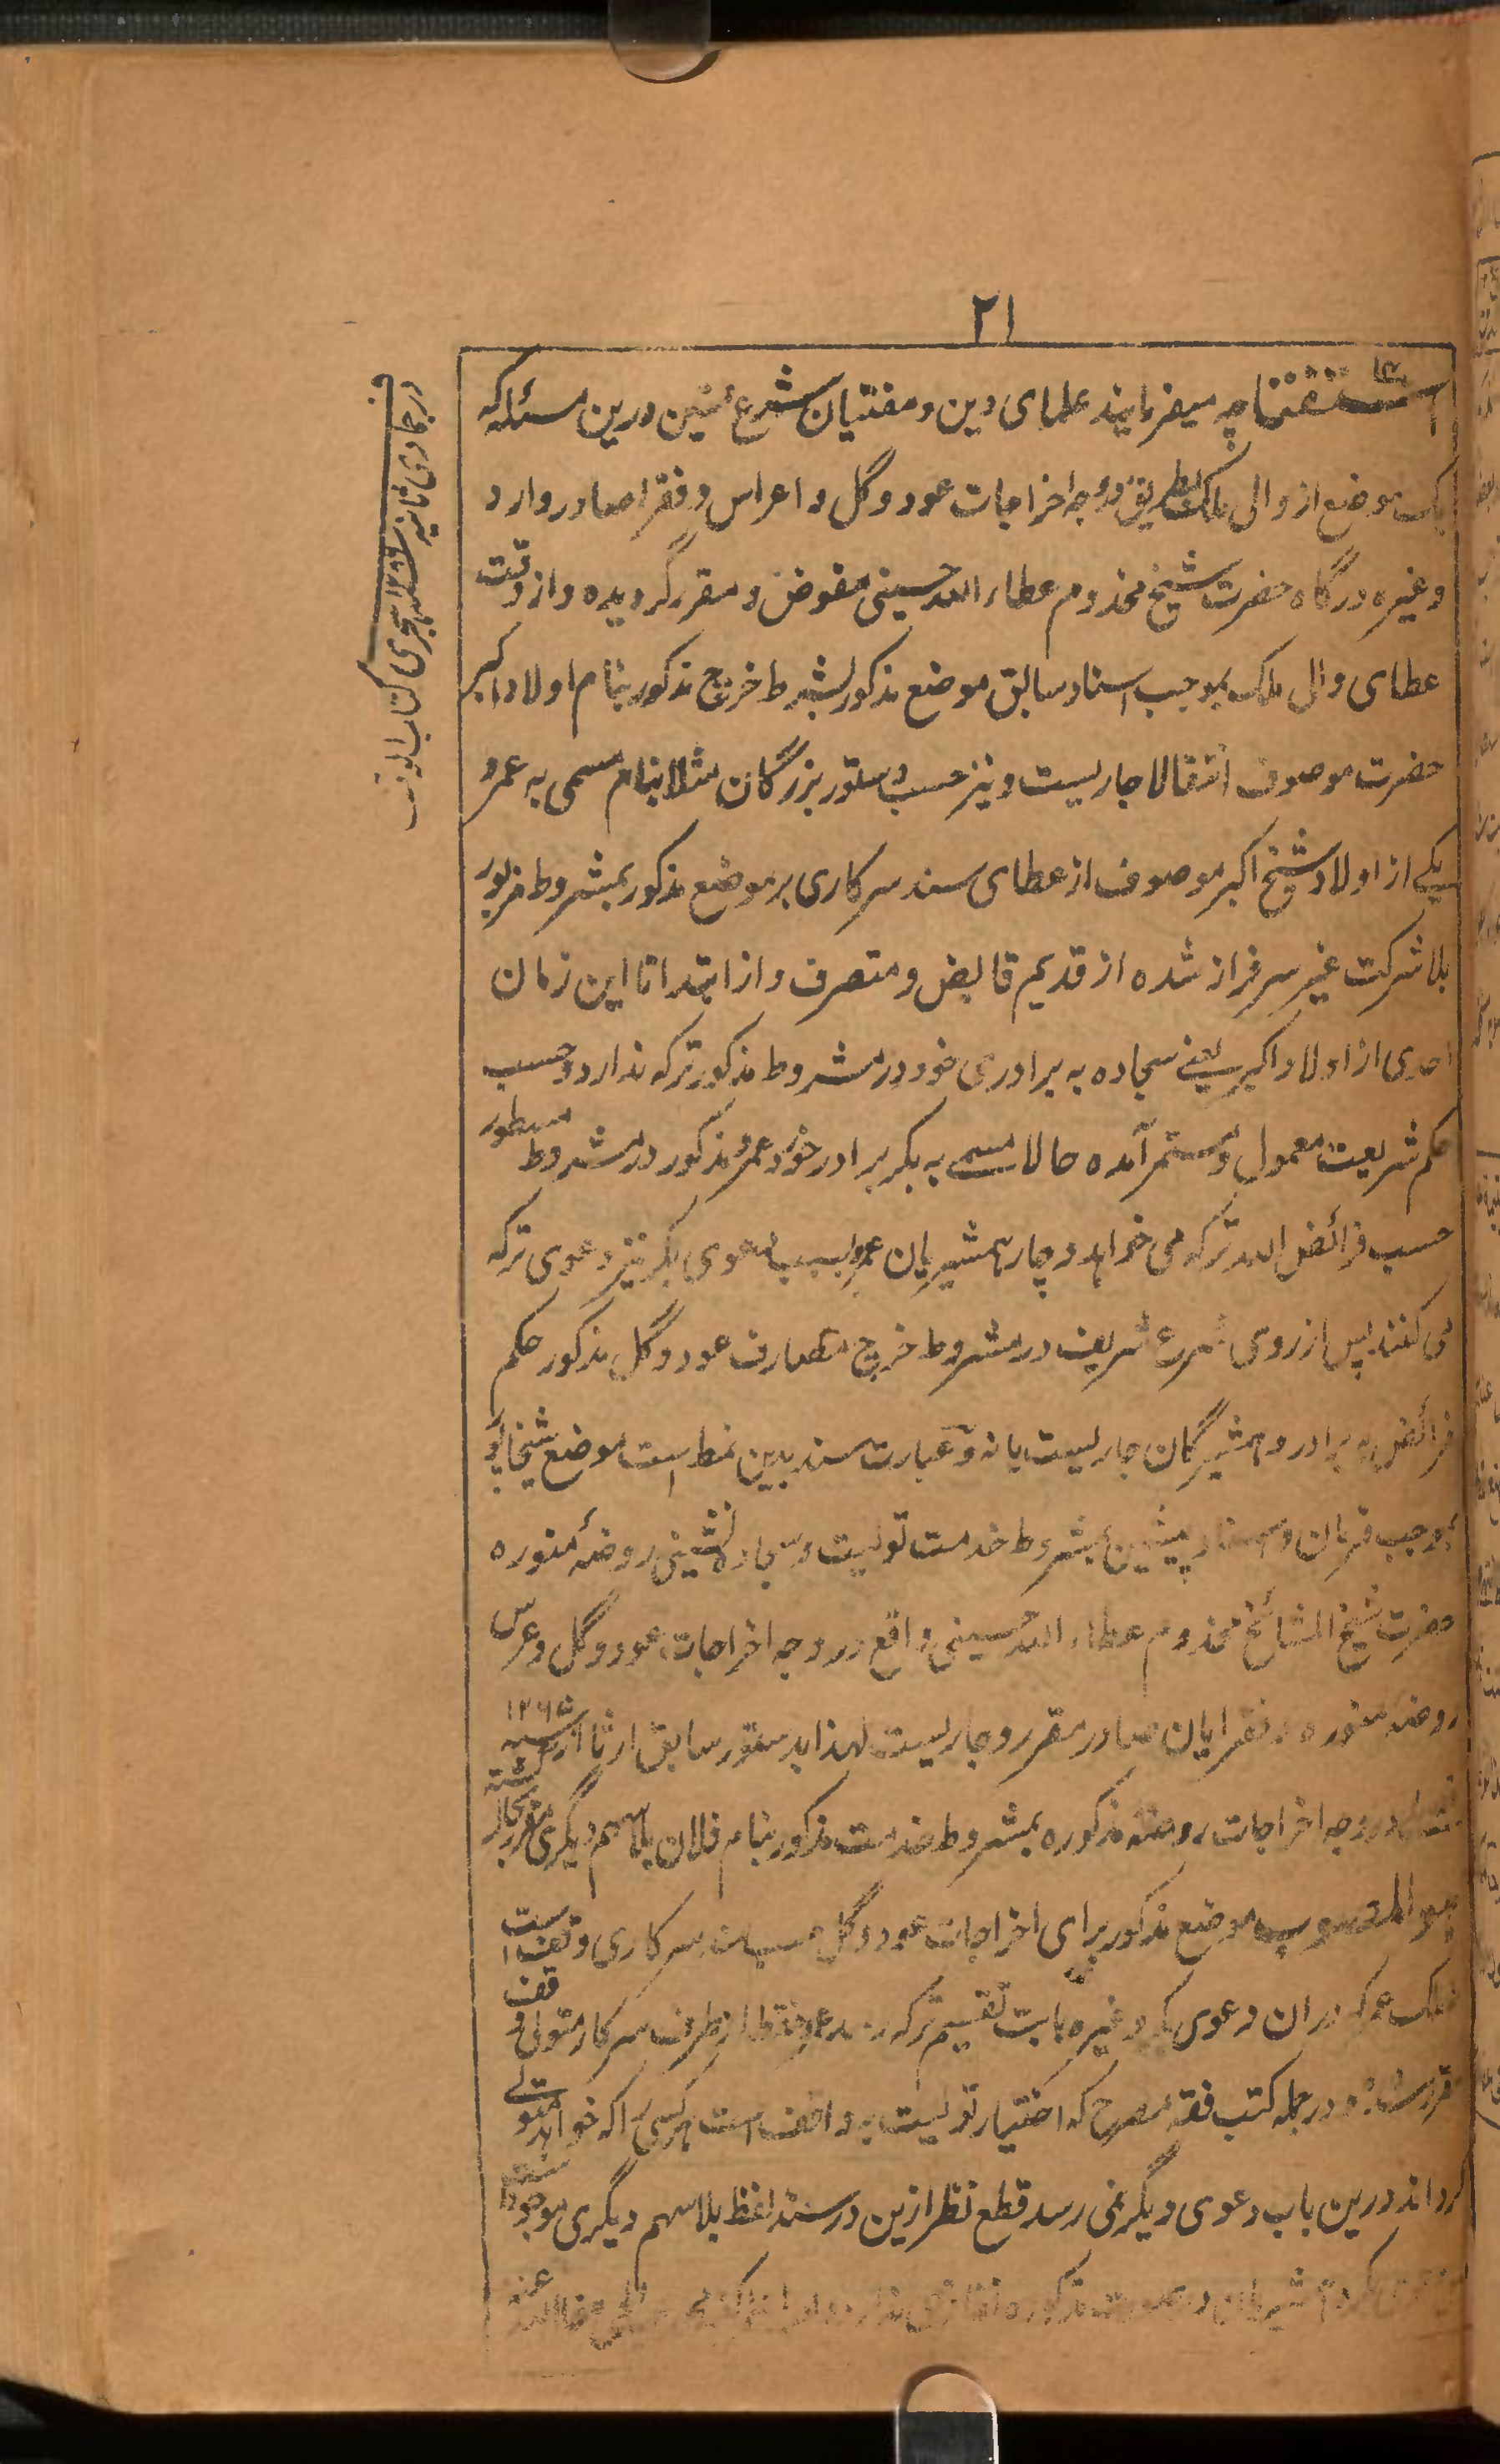 ٢١
استفتا چه میفرمایند علمای دین و مفتیان شرع متین درین مسئله که
یک موضع از والی ملک بطریق وجه اخراجات عود و گل و اعراس و فقرا صادر وارد
و غیره درگاه حضرت شیخ مخدوم عطاء الله حسینی مفوض و مقرر گردیده و از وقت
عطای والی ملک بموجب اسناد سابق موضع مذکور بشرط خرچ مذکور بنام اولاد اکبر
حضرت موصوف انتقالا جاریست و نیز حسب دستور بزرگان مثلا بنام مسمی به عمرو
یکی از اولاد شیخ اکبر موصوف از عطای سند سرکاری بر موضع مذکور بمشروط مزبور
بلا شرکت غیر سرفراز شده از قدیم قابض و متصرف و از ابتدا تا این زمان
احدی از اولاد اکبر یعنے سجاده به برادری خود در مشروط مذکور ترکه نداد و حسب
حکم شریعت معمول و مستمر آمده حالا مسمی به بکر برادر خورد عمرو مذکور در مشروط مسطور
حسب فرائض الله ترکه می خواهد و چار همشیریان عمرو بسبب دعوی بکر نیز دعوی ترکه
می کنند پس از روی شرع شریف در مشروط خرچ مصارف عود و گل مذکور حکم
فرائض به برادر و همشیرگان جاریست یا نه و عبارت سند بدین نمط است موضع
بموجب فرمان و اسناد پیشین بمشروط خدمت تولیت و سجاده نشینی روضهٔ منوره
حضرت شیخ المشائخ مخدوم عطاء الله حسینی واقع در وجه اخراجات عود و گل و عرس
روضه منوره و فقرایان صادر مقرر و جاریست لهذا بدستور سابق از سنه ١٢٦٥
در وجه اخراجات روضه مذکوره بمشروط خدمت مذکور بنام فلان بلا سهم دیگری
هو المصوب موضع مذکور برای اخراجات عود و گل حسب سند سرکاری وقف است
ملک عمرو که دران دعوی بکر و غیره بابت تقسیم ترکه رسد عمرو فقط از طرف سرکار متولی وقف
و در جمله کتب فقه مصرح که اختیار تولیت به واقف است هر کسی را که خواهد متولے
گرداند درین باب دعوی دیگر نمی رسد قطع نظر ازین در سند لفظ بلا سهم دیگری موجود است
در جمادی ثانیه هجری کتاب الوقف